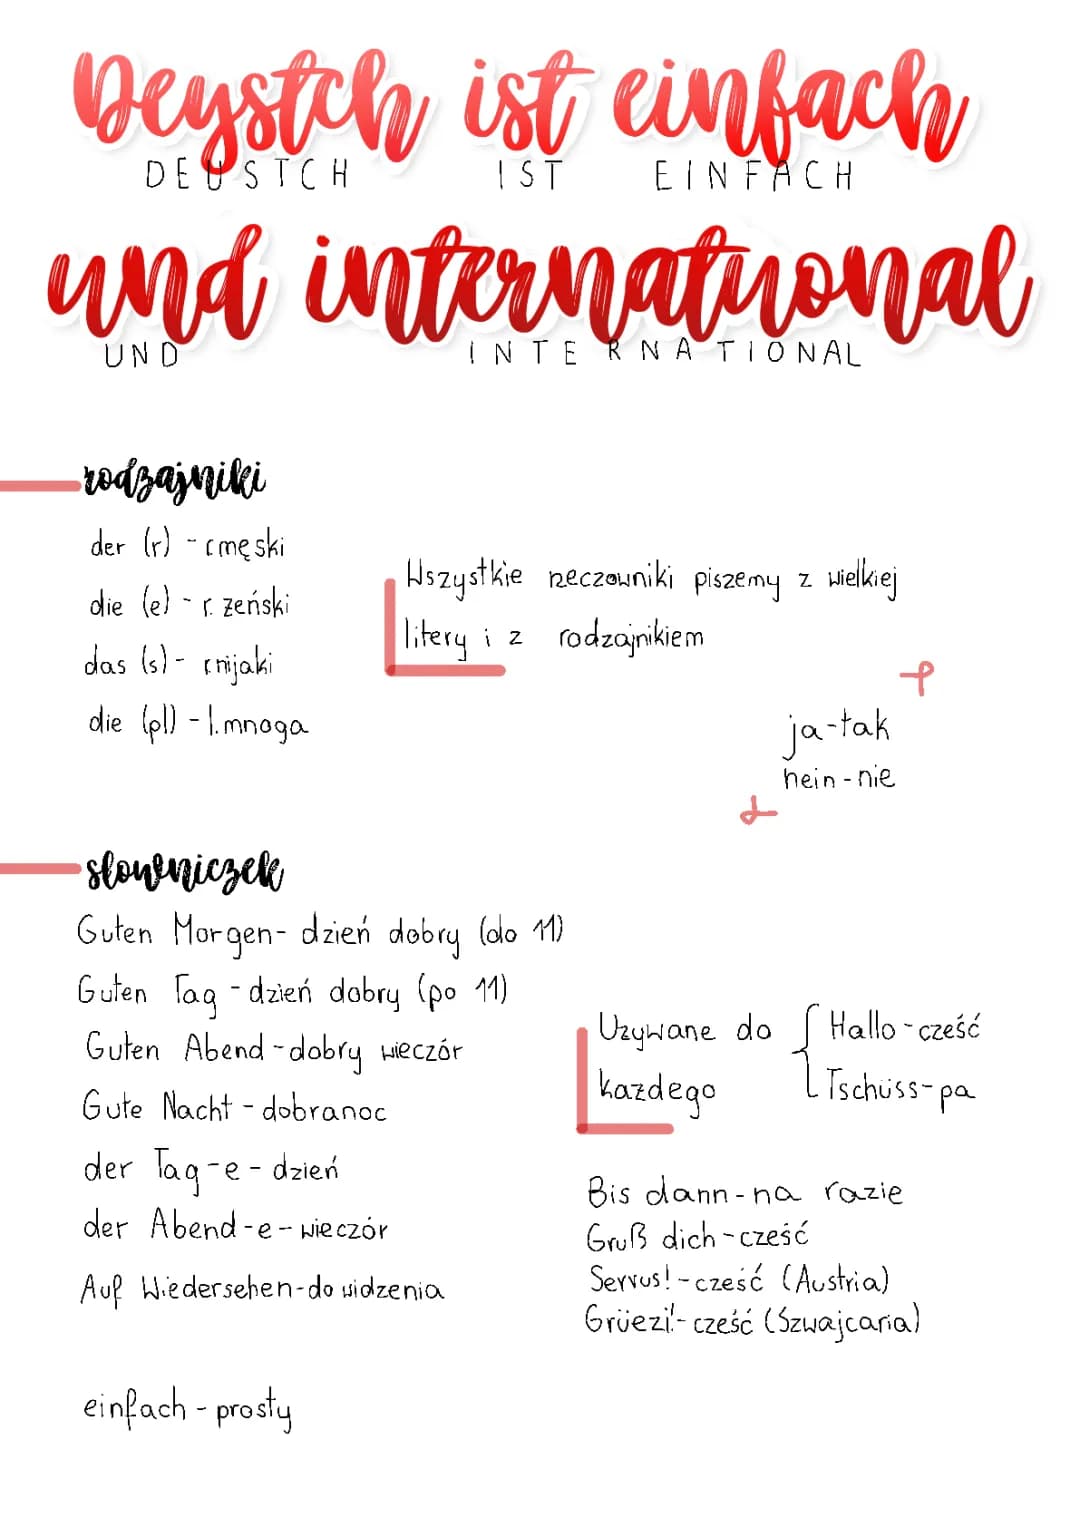 Deystch ist einfach
DEUSTCH IST EINFACH
und international
UND INTERNATIONAL
rodzajniki
der (r) - r męski
die (e) - r. żeński
das (s) - r nijaki
die (pl) - l. mnoga
Wszystkie rzeczowniki piszemy z wielkiej
litery i z rodzajnikiem
ja-tak
nein-nie
słowniczek
Guten Morgen- dzień dobry (do 11)
Guten Tag - dzień dobry (po 11)
Guten Abend - dobry wieczór
Gute Nacht - dobranoc
der Tag-e - dzień
der Abend-e - wieczór
Auf Wiedersehen-do widzenia
einfach - prosty
Używane do
każdego
Hallo - cześć
Tschüss - pa
Bis dann - na razie
Gruß dich - cześć
Servus! - cześć (Austria)
Grüezi! - cześć (Szwajcaria)